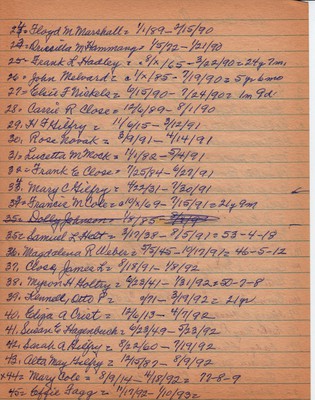 22= Floyd M. Marshall= 1/1/89- /15/90
M Hammang= 1/5/92-1/21/90
25= Frank L. Hadley= 8/2/65- 3/22/90=24y 7m.
26= John Melvard= 2/1/85- 7/19/90= 5yr 6mo
27= Elsie F Nickels= 6/15/90- 7/24/90= 1m 9d
28= Carrie R Close= 12/6/89- 8/1/90
29. H F Hilfry= 11/6/15- 3/12/91
30, Rose Novak= 3/9/91- 4/14/91
31, Lusetta M Mock= 1/1/82- 5/4/91
32= Frank E Close= 7/25/84- 6/27/91
33. Mary C Hilfry= 4/22/31- 7/20/91
34= Francis M Cole= 2/19/69- 7/15/91= 21y 9m
35= Dolly Johnson= 1/8/85-
35= Samuel L Hatt= 3/17/38- 8/5/91= 53-4-18
36= Magdalena R Weber= 5/5/45-10/17/91= 46-5-12
37. Close, James L= 8/18/91- 1/8/92
38. Myron H Holtry= 6/23/41- 1/31/92=50-7-8
39. Kendell, Otto P= 2/71- 3/19/92= 21yr
40. Edga A Crist= 12/6/13- 4/7/92
41. Susan E Hagenbuch= 6/23/49- 5/23/92
42= Sarah A Hilfry= 8/22/60- 7/19/92
43. Alta May Hilfry= 12/15/87- 8/9/92
x44= Mary Cole= 8/9/14- 4/18/92= 78-8-9
45= Effie Fagg= 11/17/92- 1/10/93=